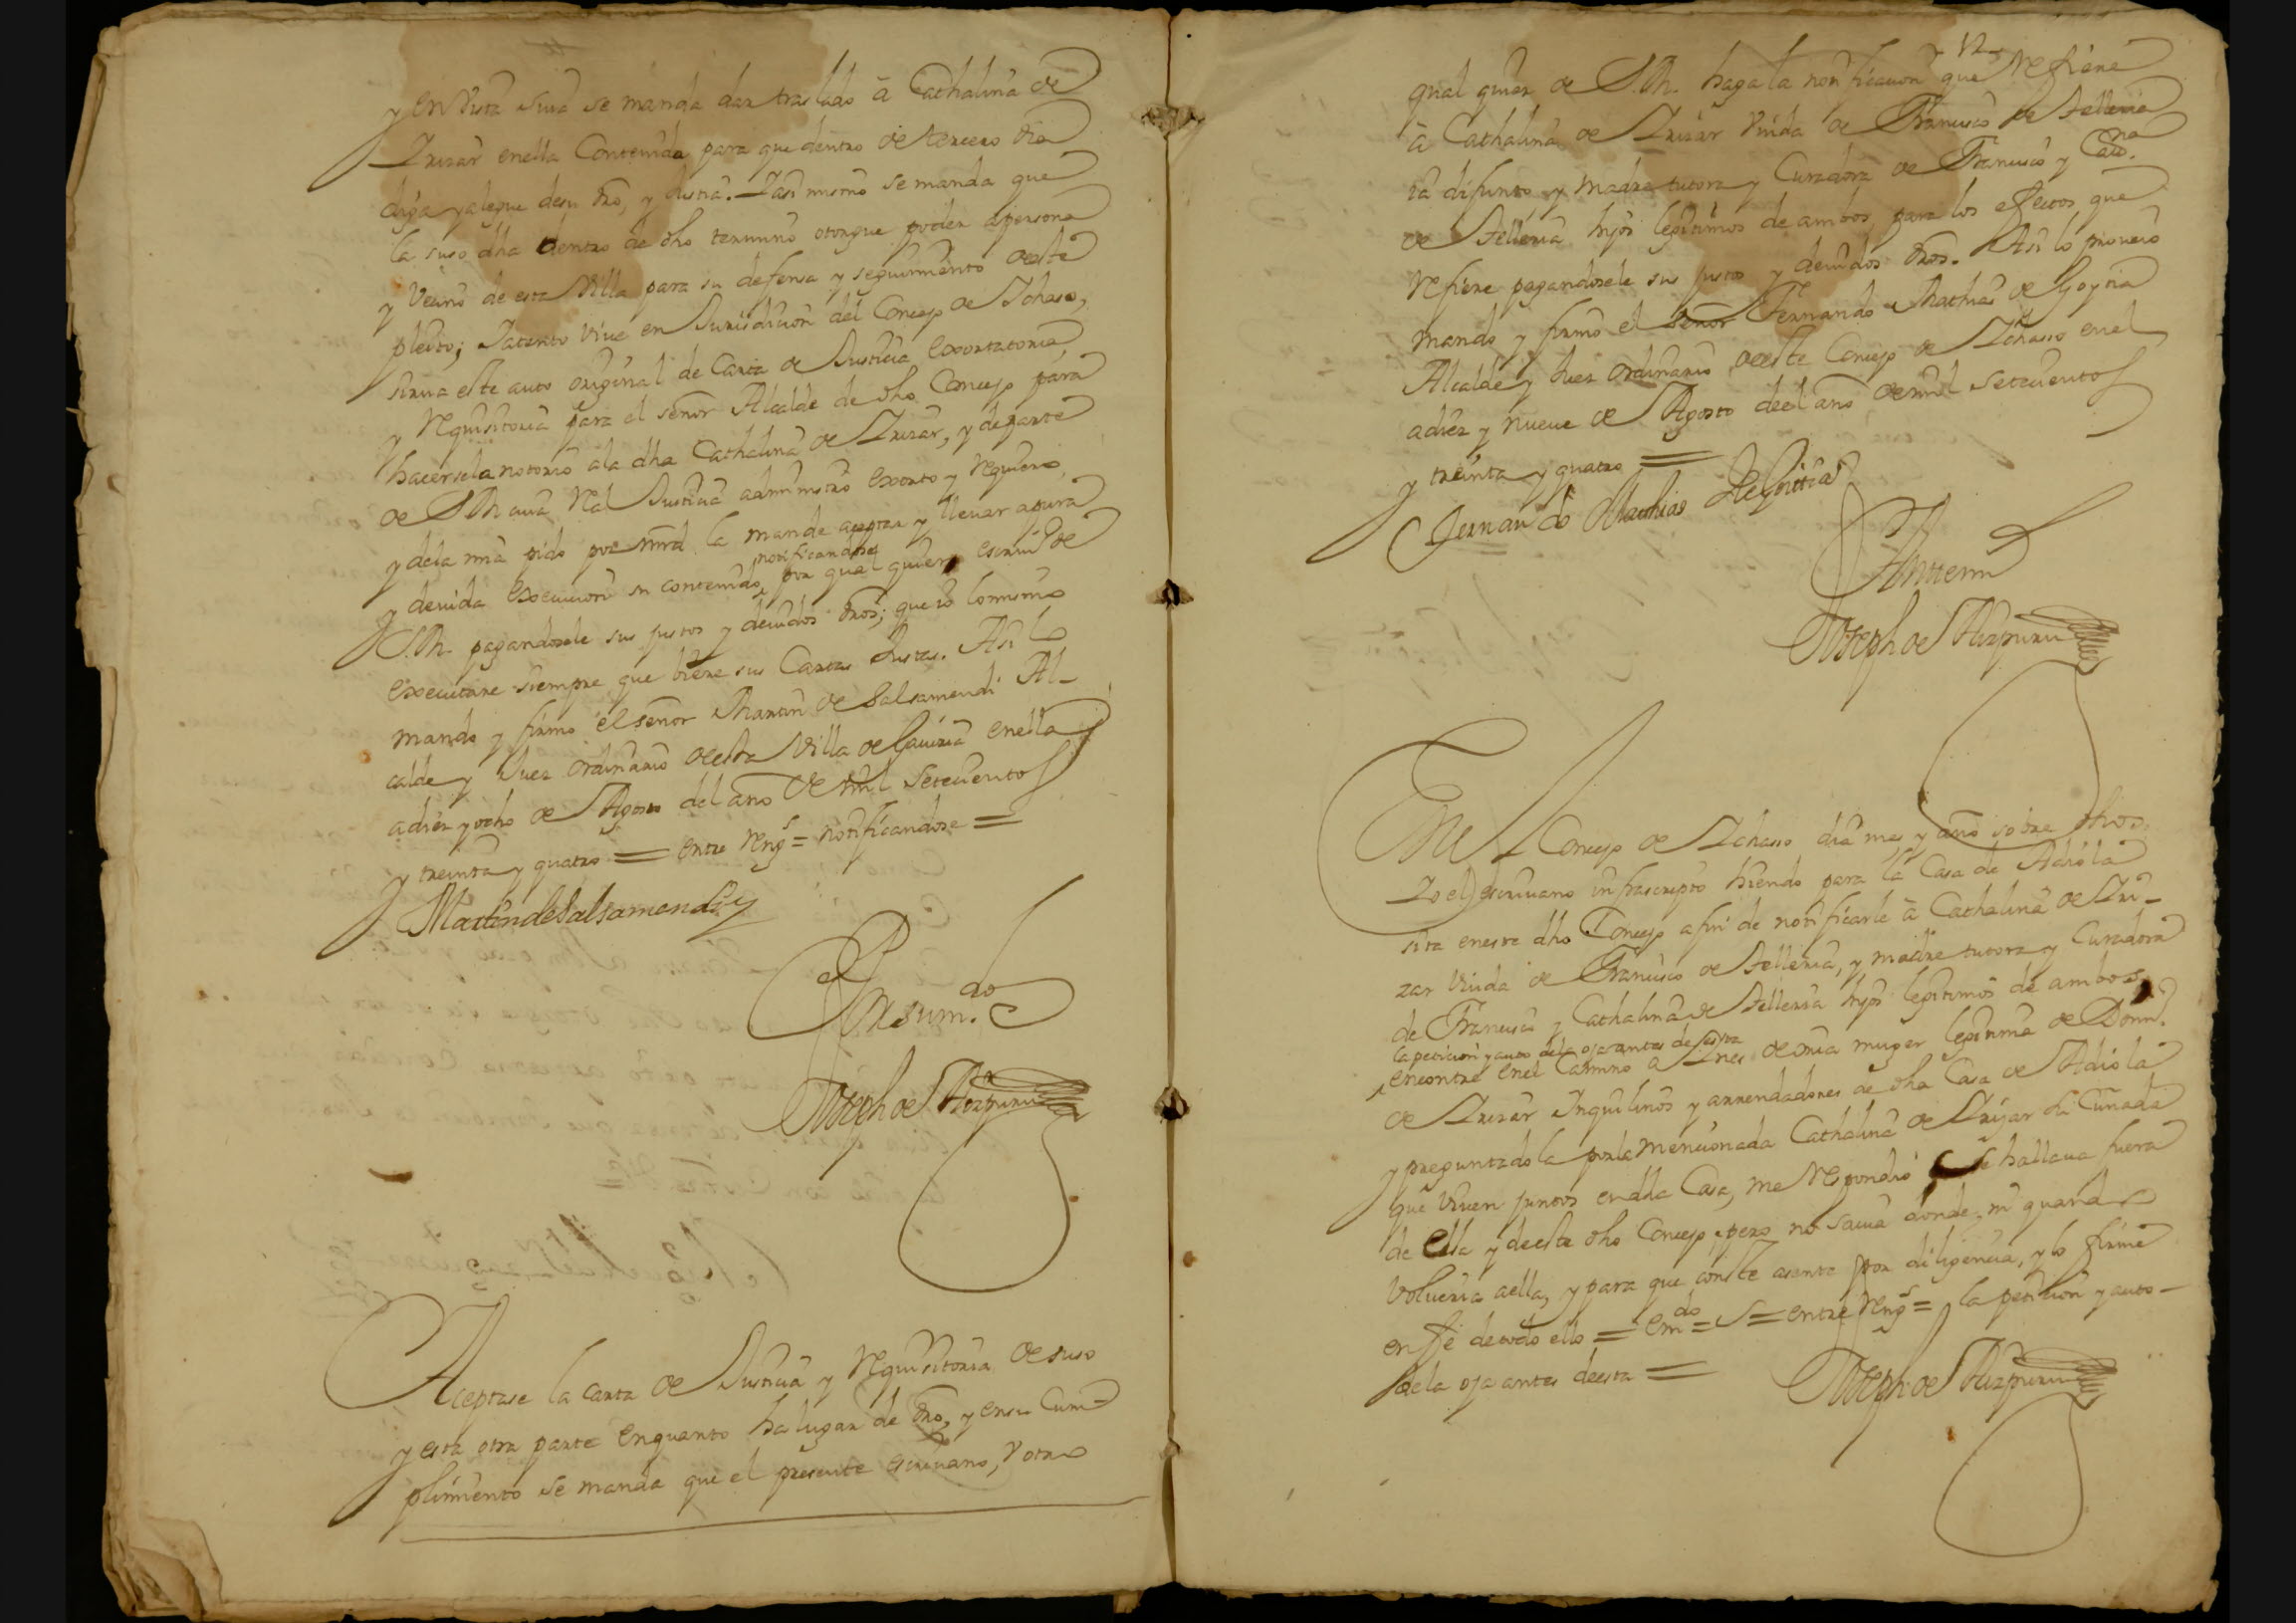 y en vista suia se manda dar traslado â Cathalina de
Yrizar en ella Contenida para que dentro de tercero dia
diga y alegue de su dro, y Justiã. Y asi mismo se manda que
la suso dha dentro de dho termino otorgue poder apersona
y Vecino de esta Villa para su defensa y seguimiento deeste
pleito; Y atento vive en Jurisdicion del Concejo de Ichaso,
sirva este auto original de Carta de Justicia Exortatoria,
y Requisitoria para el señor Alcalde de dho Concejo para
hacersela notorio ala dha Cathalina de Yrizar, y de parte
de S.M. cuia Rl Justicia administro Exorto y Requiero,
y dela mia pido por mrd la mande aceptar y llevar apura
y devida Execucion su contenido, notificandose por qual quiera escriv.º de
S.M. pagandosele sus justos y devidos dros; que io lo mismo
Executare siempre que viere sus Cartas Justas. Asi lo
mando y firmo el señor Martin de Salsamendi Al-
calde y Juez ordinario deesta Villa de Gaviria en ella
a diez y ocho de Agosto del año de mil Setecientos
y treinta y quatro = entre Reng.s = notificandose =
Martin de Salsamendi
Presum.do
Joseph de Aizpuru
Aceptase la carta de Justicia y Requisitoria de suso
y esta otra parte en quanto ha lugar de dro, y en su Cum-
plimiento se manda que el presente escrivano, v otro
12
qual quier de S.M. haga la notificacion que Refiere
â Cathalina de Yrizar Viuda de Francisco de Telleria
ia difunto y madre tutora y Curadora de Francisco y Cath.na
de Telleria hijos legitimos de ambos, para los efectos que
Refiere pagandosele sus justos y devidos dros. Asi lo proveio
mando y firmo el señor Fernando Mathias de Goytia
Alcalde y Juez ordinario deeste Concejo de Ichasso en el
a diez y nueve de Agosto deel año de mil Setecientos
y treinta y quatro =
Fernando Mathias de Goittia
Ante mi
Joseph de Aizpuru
En el Concejo de Ichasso dia mes y año sobre dhos,
Yo el escrivano infrascripto hiendo para la Casa de Adiola
sita en este dho Concejo a fin de notificarle â Cathalina de Yri-
zar Viuda de Francisco de Telleria, y madre tutora y Curadora
de Francisco y Cathalina de Telleria hijos legitimos de ambos,
la peticion y auto dela oja antes de esta
encontre en el Camino a Ynes de mia muger legitima de Dom.º
de Yrizar Ynquilinos y arrendadores de dha Casa de Adiola
y preguntadola por la mencionada Cathalina de Yrizar su Cuñada
que viven juntos en dha Casa, me Respondio Se hallava fuera
de Ella y deeste dho Concejo, pero no savia donde, ni quando
volveria aella, y para que conste asente por diligencia, y lo firmé
en fe de todo ello = em.do = S = entre Reng.s = la peticion y auto-
dela oja antes deesta =
Joseph de Aizpuru